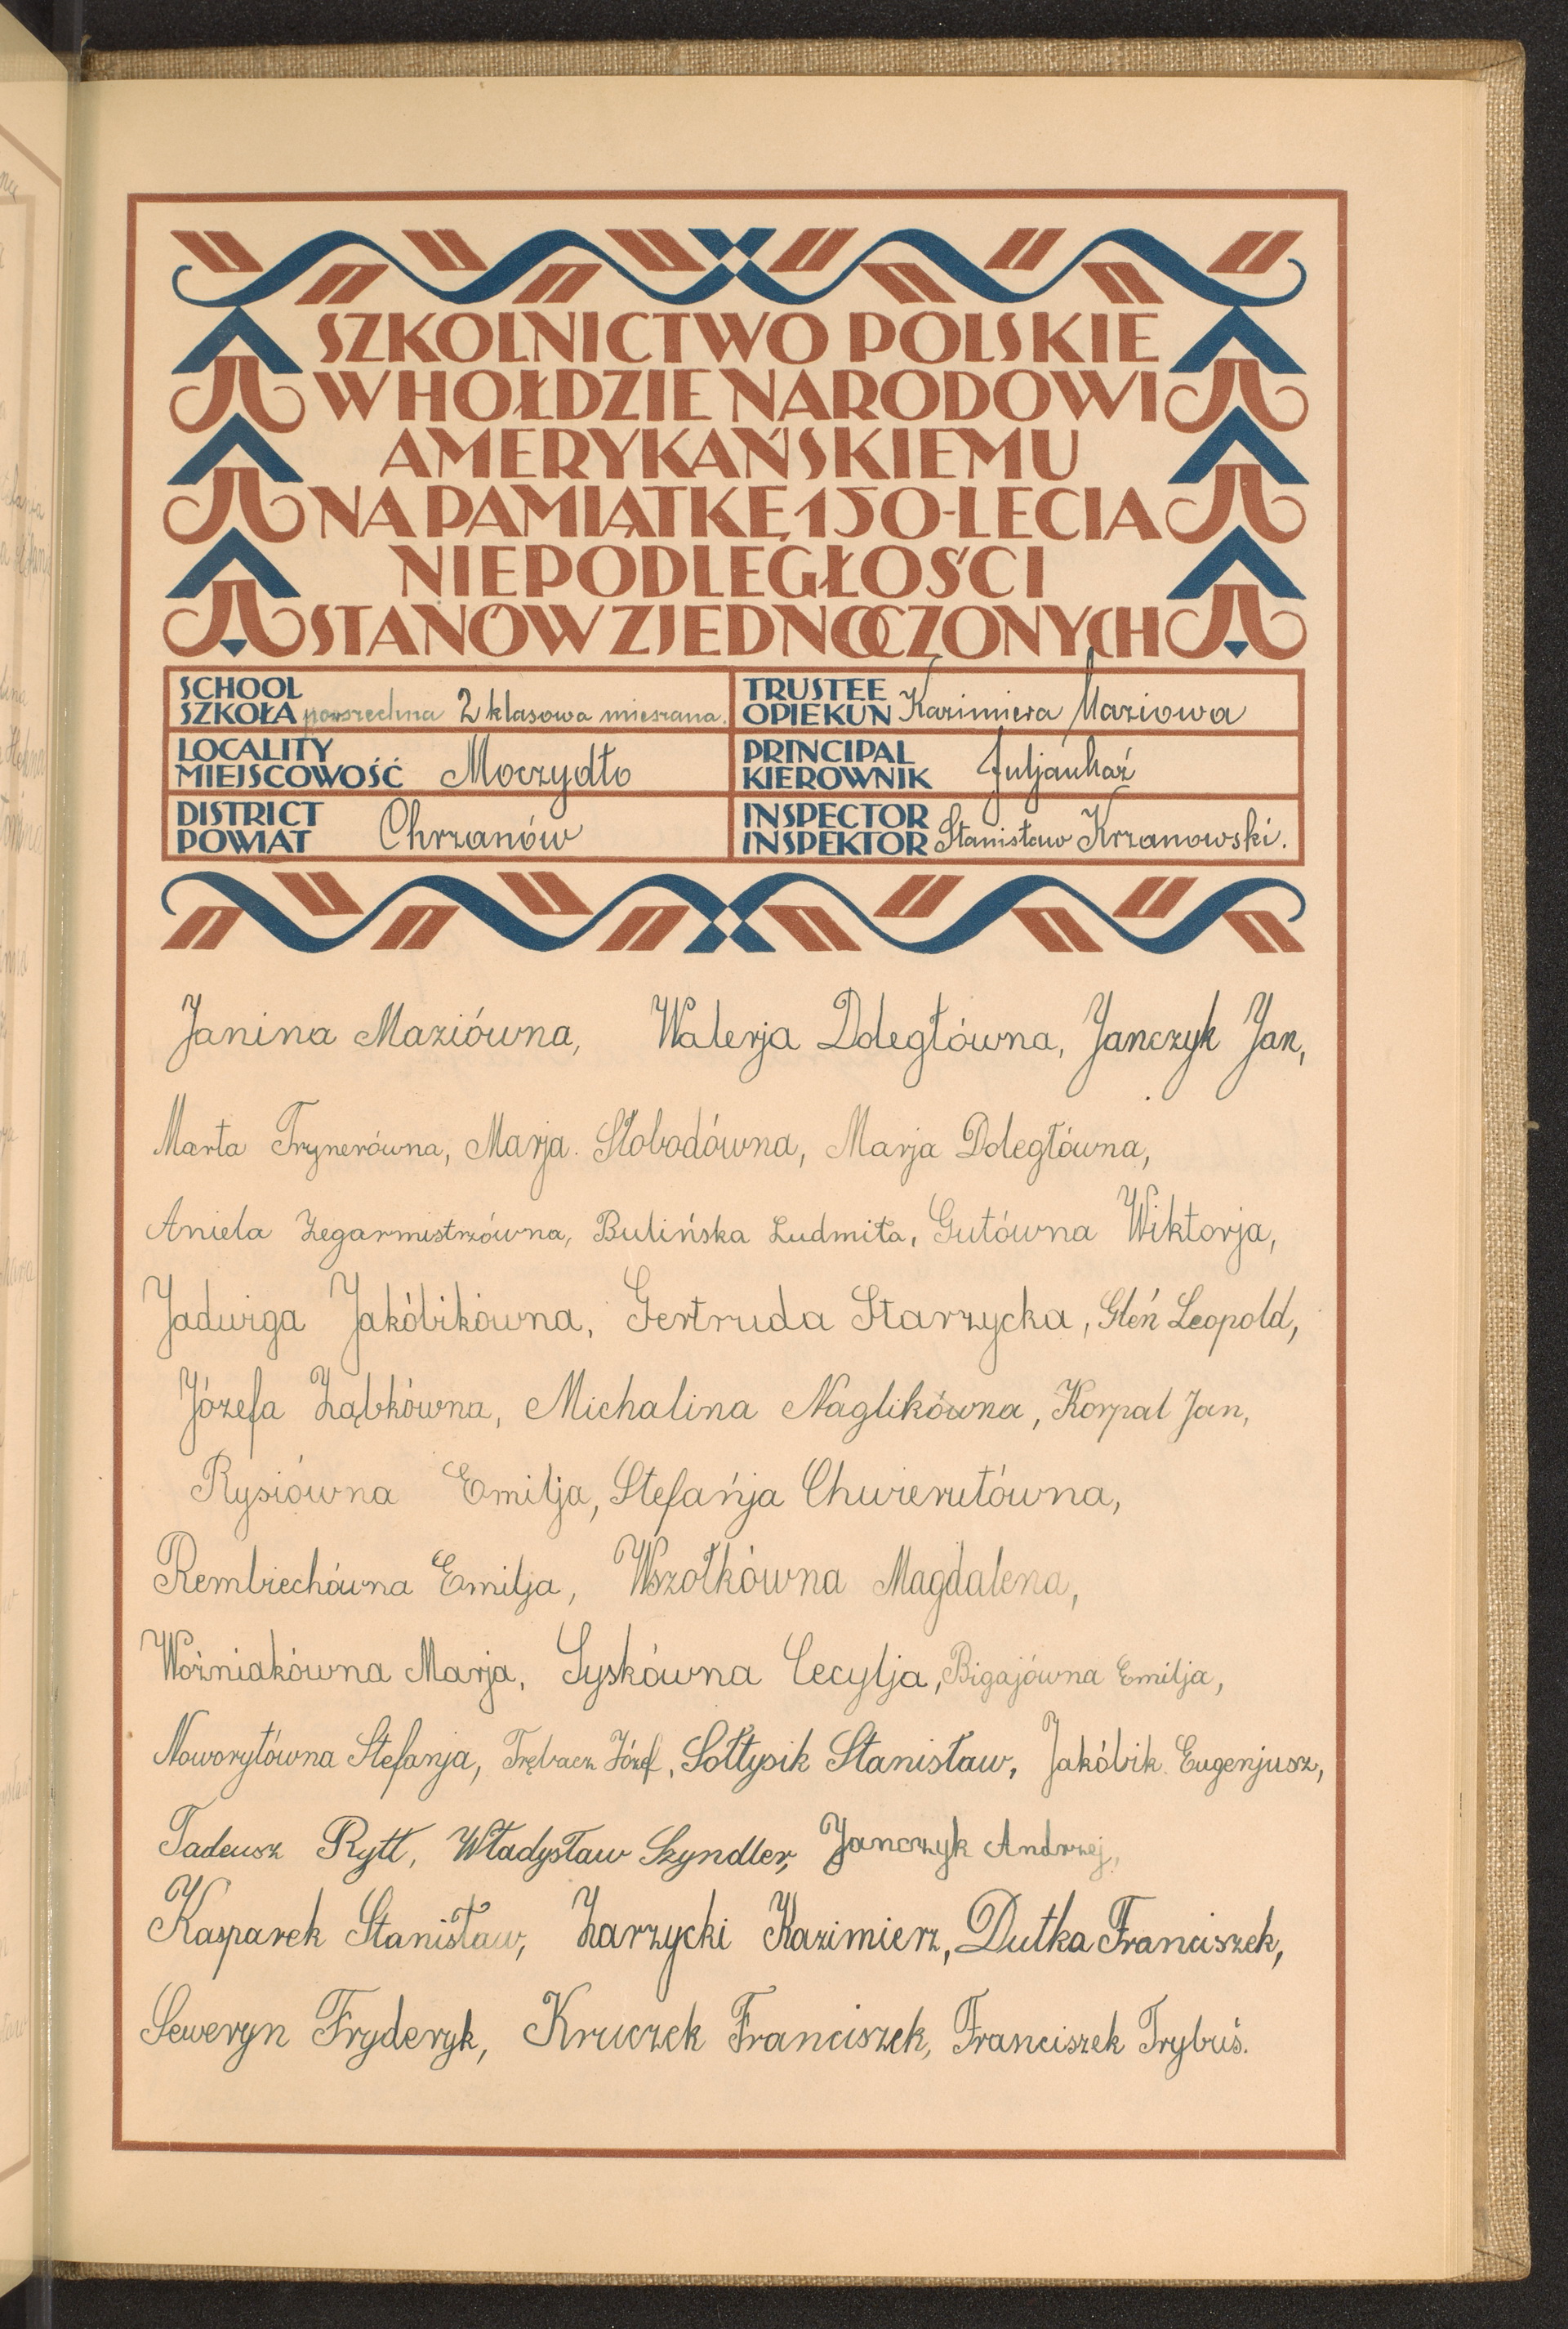 SZKOLNICTWO POLSKIE
W HOŁDZIE NARODOWI
AMERYKAŃSKIEMU
NA PAMIĄTKĘ 150-LECIA
NIEPODLEGŁOŚCI
STANÓW ZJEDNOCZONYCH
SCHOOL
SZKOŁA powszechna 2 klasowa mieszana.
TRUSTEE
OPIEKUN Kazimiera Maziowa
LOCALITY
MIEJSCOWOŚĆ Moczydło
PRINCIPAL
KIEROWNIK
DISTRICT
POWIAT Chrzanów
INSPECTOR
INSPEKTOR Stanisław Krzanowski.
Janina Maziówna, Walerja Doległówna, Janczyk Jan,
Marta Trynerówna, Marja. Słobodówna, Marja Doległówna,
Aniela Zegarmistrzówna, Bulińska Ludmiła, Gutówna Wiktorja,
Jadwiga Jakóbikówna, Gertruda Starzycka, Gleń Leopold,
Józefa Ząbkówna, Michalina Naglikówna, Korpal Jan,
Rysiówna Emilja, Stefańja Chwierutówna,
Rembiechówna Emilja, Wszołkówna Magdalena,
Woźniakówna Marja, Syskówna Cecylja, Bigajówna Emilja,
Noworytówna Stefanja, Trębacz Józef, Sołtysik Stanisław, Jakóbik Eugenjusz,
Tadeusz Rytt, Władysław Szyndler, Janczyk Andrzej,
Kasparek Stanisław, Zarzycki Kazimierz, Dutka Franciszek,
Seweryn Fryderyk, Kruczek Franciszek, Franciszek Trybuś.